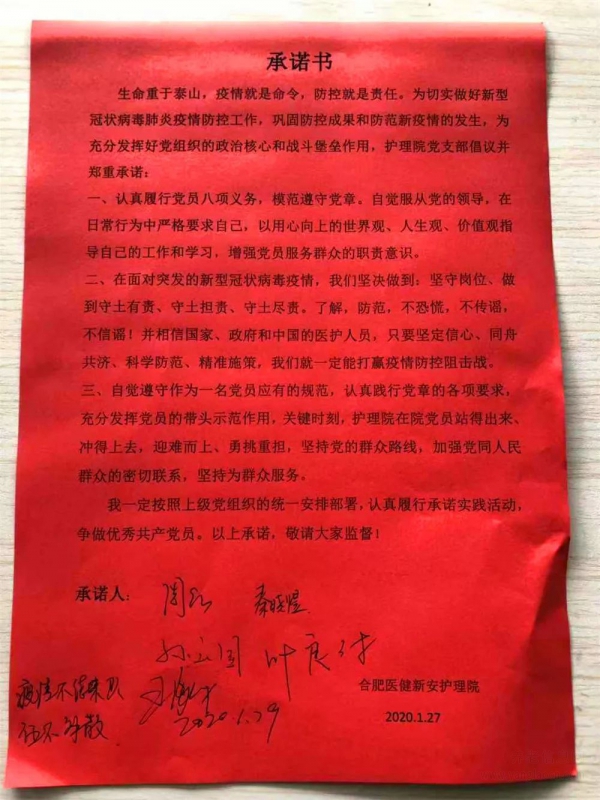 承诺书
生命重于泰山，疫情就是命令，防控就是责任。为切实做好新型
冠状病毒肺炎疫情防控工作，巩固防控成果和防范新疫情的发生，为
充分发挥好党组织的政治核心和战斗堡垒作用，护理院党支部倡议并
郑重承诺：
一、认真履行党员八项义务，模范遵守党章。自觉服从党的领导，在
日常行为中严格要求自己，以用心向上的世界观、人生观、价值观指
导自己的工作和学习，增强党员服务群众的职责意识。
二、在面对突发的新型冠状病毒疫情，我们坚决做到：坚守岗位、做
到守土有责、守土担责、守土尽责。了解，防范，不恐慌，不传谣，
不信谣！并相信国家、政府和中国的医护人员，只要坚定信心、同舟
共济、科学防范、精准施策，我们就一定能打赢疫情防控阻击战。
三、自觉遵守作为一名党员应有的规范，认真践行党章的各项要求，
充分发挥党员的带头示范作用，关键时刻，护理院在院党员站得出来、
冲得上去，迎难而上、勇挑重担，坚持党的群众路线，加强党同人民
群众的密切联系，坚持为群众服务。
我一定按照上级党组织的统一安排部署，认真履行承诺实践活动，
争做优秀共产党员。以上承诺，敬请大家监督！
承诺人：
叶良
疫情不结束队
伍不解散
2020.1.29
合肥医健新安护理院
2020.1.27